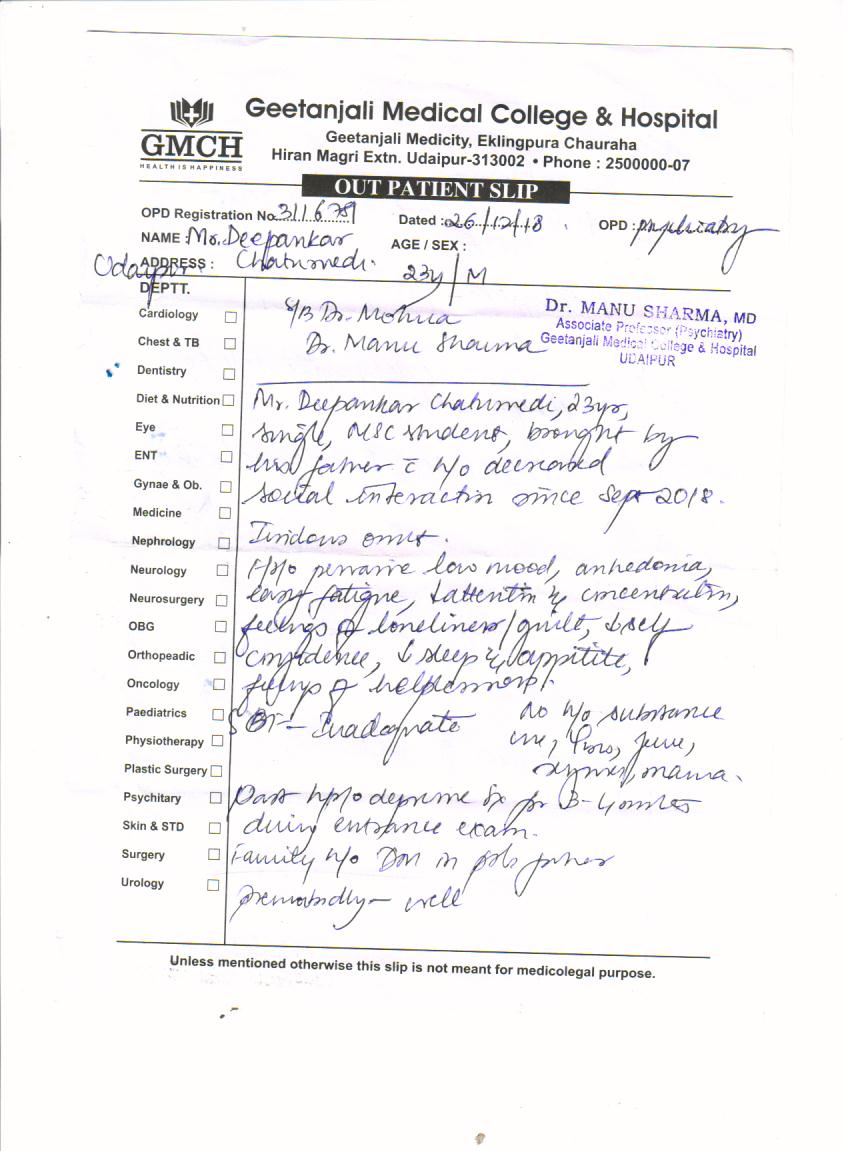 GMCH
HEALTH IS HAPPINESS
Geetanjali Medical College & Hospital
Geetanjali Medicity, Eklingpura Chauraha
Hiran Magri Extn. Udaipur-313002 • Phone : 2500000-07
OUT PATIENT SLIP
OPD Registration No. 311678
Dated : 26/12/18
OPD : Psychiatry
NAME : Mr. Deepankar
AGE / SEX :
ADDRESS : Chaturvedi.
Udaipur
23y/M
DEPTT.
Cardiology
Chest & TB
Dentistry
Diet & Nutrition
Eye
ENT
Gynae & Ob.
Medicine
Nephrology
Neurology
Neurosurgery
OBG
Orthopeadic
Oncology
Paediatrics
Physiotherapy
Plastic Surgery
Psychitary
Skin & STD
Surgery
Urology
S/B Dr.
Dr. Manu Sharma
Dr. MANU SHARMA, MD
Associate Professor (Psychiatry)
Geetanjali Medical College & Hospital
UDAIPUR
Mr. Deepankar Chaturvedi, 23yrs,
single, MSC student, brought by
his father c̄ h/o decreased
social interaction since Sept 2018.
Insidious onset.
H/o pervasive low mood, anhedonia,
easy fatigue, ↓attention & concentration,
feelings of loneliness/guilt, ↓self
confidence, ↓sleep & appitite,
feelings of helplessness.
Inadaquate
No h/o substance
use, fever,
mania.
Past h/o depressive for 3-4 months
during entrance exam.
Family h/o DM in father
premorbidly - well
Unless mentioned otherwise this slip is not meant for medicolegal purpose.